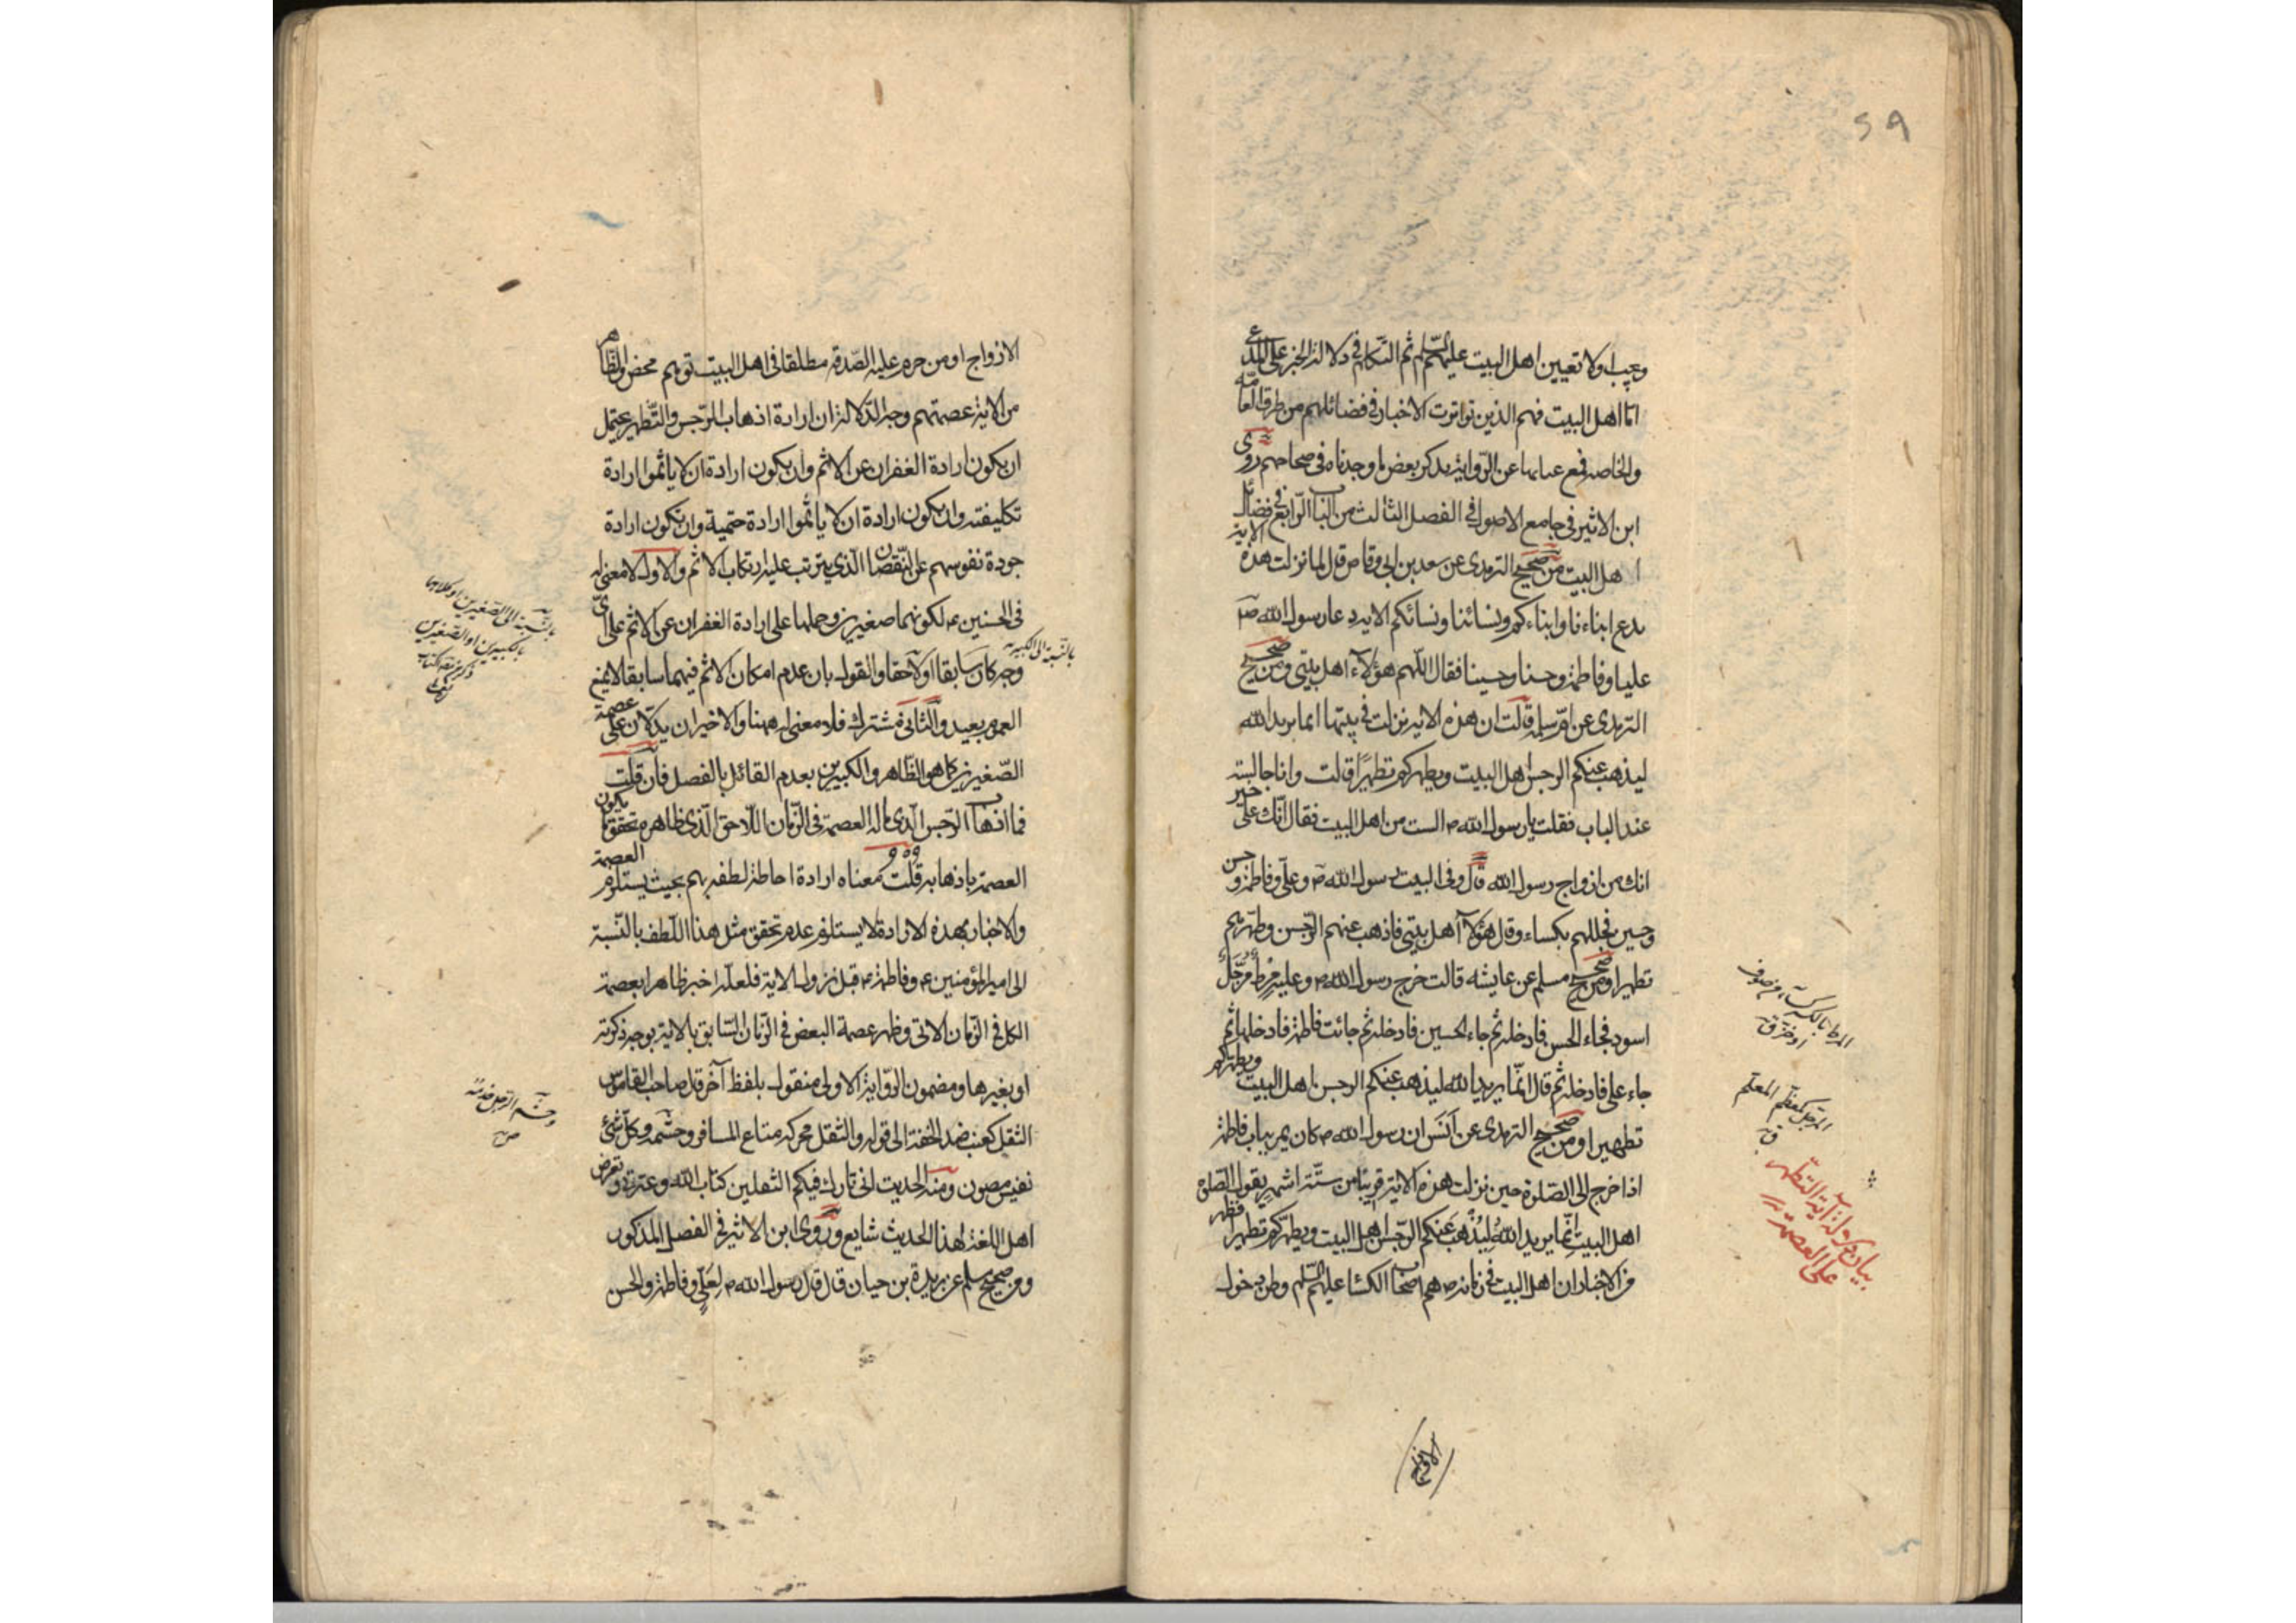 ٥٩
ويجب اولا تعيين اهل البيت عليهم السّلم ثم التكلم في دلالة الخبر على المدعى
امّا اهل البيت فهم الذين تواترت الاخبار في فضائلهم من طرق العامّه
والخاصه عن الرّواية يذكر بعض ما وجدناه في صحاحهم روى
ابن الاثير في جامع الاصول في الفصل الثالث من الباب الرّابع في فضائل
اهل البيت من صحيح الترمذى عن سعد بن ابى وقاص قال لما نزلت هذه الاية
ندع ابناءنا وابناءكم ونسائنا ونسائكم الاية دعا رسول الله ص
عليا وفاطمة وحسنا وحسينا فقال اللّهم هؤلاء اهل بيتى ومن صحيح
الترمذى عن ام سلمة قالت ان هذه الاية نزلت في بيتها انما يريد الله
ليذهب عنكم الرجس اهل البيت ويطهركم تطهيرًا قالت وانا جالسة
عند الباب فقلت يا رسول الله ص الست من اهل البيت فقال انّك على خير
انك من ازواج رسول الله قال وفى البيت رسول الله ص وعلى وفاطمة وحسن
وحسين فجللهم بكساء وقال هؤلاء اهل بيتى فاذهب عنهم الرّجس وطهّرهم
تطهيرا ومن صحيح مسلم عن عايشه قالت خرج رسول الله ص وعليه مِرْطٌ مُرَجَّلٌ
اسود فجاء الحسن فادخله ثم جاء الحسين فادخله ثم جائت فاطمة فادخلها ثم
جاء على فادخله ثم قال انّما يريد الله ليذهب عنكم الرجس اهل البيت ويطهركم
تطهيرا ومن صحيح الترمذى عن اَنَس ان رسول الله ص كان يمر بباب فاطمة
اذا خرج الى الصّلوة حين نزلت هذه الاية قريبا من ستّة اشهر يقول الصّلوة
اهل البيت انّما يريد اللهُ لِيُذْهبَ عَنكم الرّجس اهل البيت ويطهّركم تطهيرا فظهر
من الاخبار ان اهل البيت في زمانه ص هم اصحاب الكساء عليهم السّلم وظن دخول
المرط بالكسر كساء من صوف
او خز ق
المرجل كمعظم المعلم
ق
بيان دلالة آية التطهير
على العصمة
الازواج او من حرم عليه الصّدقة مطلقا في اهل البيت توهم محض والظاهر
من الاية عصمتهم وجه الدّلالة ان ارادة اذهاب الرّجس والتّطهير يحتمل
ان يكون ارادة الغفران عن الاثم وان يكون ارادة ان لا ياثموا ارادة
تكليفية وان يكون ارادة ان لا ياثموا ارادة حتمية وان يكون ارادة
جودة نفوسهم عن النّقصان الّذى يترتب عليه ارتكاب الاثم والاول لا معنى له
في الحسنين ع لكونهما صغيرين وحملها على ارادة الغفران عن الاثم على اىّ
وجه كان سابقا او لاحقا والقول بان عدم امكان الاثم فيهما سابقا لا يمنع
العموم بعيد والثانى مشترك فلا معنى له ههنا والاخيران يدلّان على عصمة
الصّغيرين كما هو الظّاهر والكبيرين بعدم القائل بالفصل فان قلت
فما اذهاب الرّجس الّذى ماله العصمة في الزّمان اللّاحق الّذى ظاهره تحقق
العصمة باذهابه قلت معناه ارادة احاطة لطفه بهم بحيث يستلزم العصمة
والاخبار بهذه الارادة لا يستلزم عدم تحقق مثل هذا اللّطف بالنّسبة
الى امير المؤمنين ع وفاطمة ع قبل نزول الاية فلعلّه اخبر ظاهرا بعصمة
الكل في الزّمان الاتى وظهر عصمة البعض في الزّمان السّابق بالاية بوجه ذكرته
او بغيرها ومضمون الرّواية الاولى منقول بلفظ آخر قال صاحب القاموس
الثقل كعنب ضد الخفة الى قوله والثقل محركه متاع المسافر وحشمه وكل شئ
نفيس مصون ومنه الحديث انى تارك فيكم الثقلين كتاب الله وعترتى وتعرض
اهل اللغة لهذا الحديث شايع وروى ابن الاثير في الفصل المذكور
ومن صحيح مسلم عن يزيد بن حيان قال قال رسول الله ص لعلى وفاطمة والحسن
بالنسبة الى الكبيرين
بالنسبة الى الصغيرين او كلاهما
بالكبيرين او الصغيرين